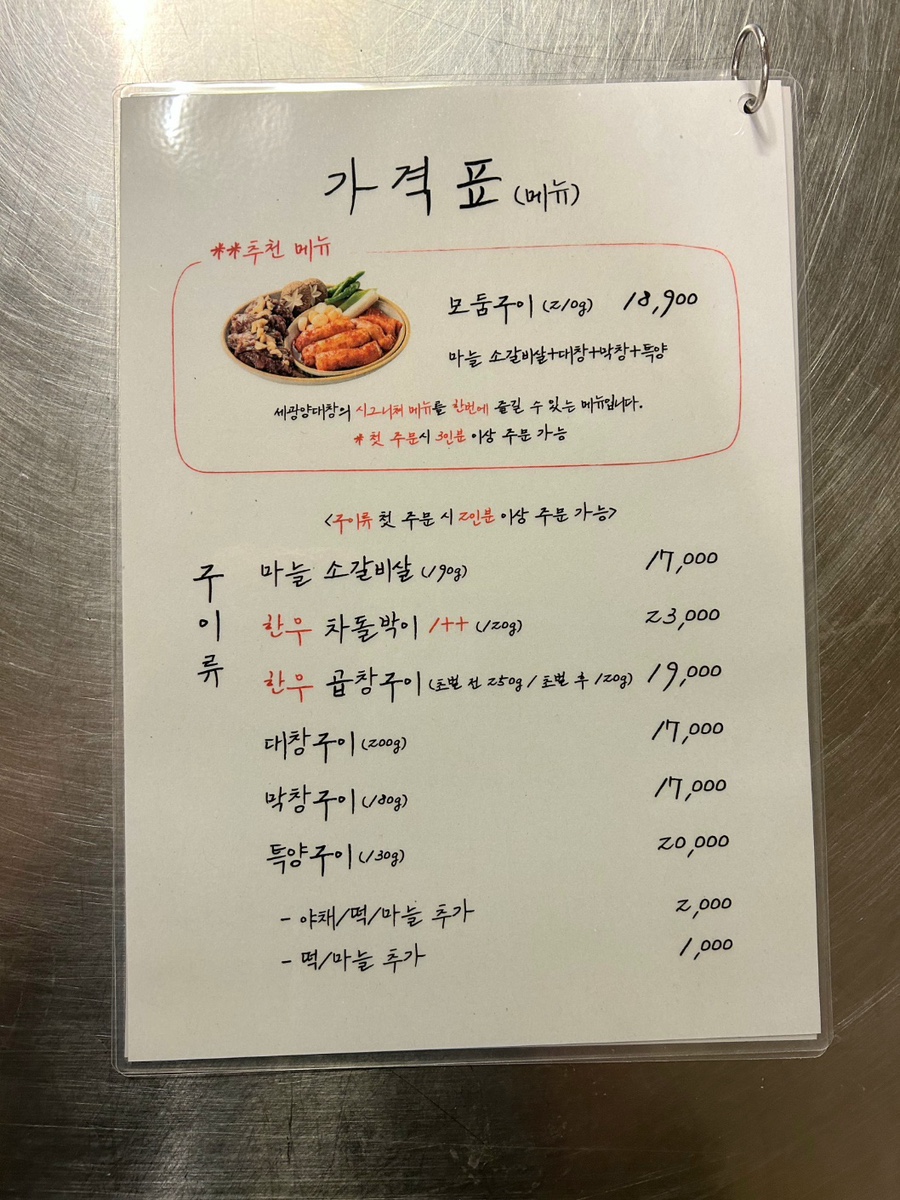 가격표 (메뉴)
**추천 메뉴
모둠구이 (210g) 18,900
마늘 소갈비살+대창+막창+특양
세광양대창의 시그니처 메뉴를 한번에 즐길 수 있는 메뉴입니다.
* 첫 주문시 3인분 이상 주문 가능
<구이류 첫 주문 시 2인분 이상 주문 가능>
구이류
마늘 소갈비살 (190g) 17,000
한우 차돌박이 1++ (120g) 23,000
한우 곱창구이 (초벌 전 250g / 초벌 후 120g) 19,000
대창구이 (200g) 17,000
막창구이 (180g) 17,000
특양구이 (130g) 20,000
- 야채/떡/마늘 추가 2,000
- 떡/마늘 추가 1,000